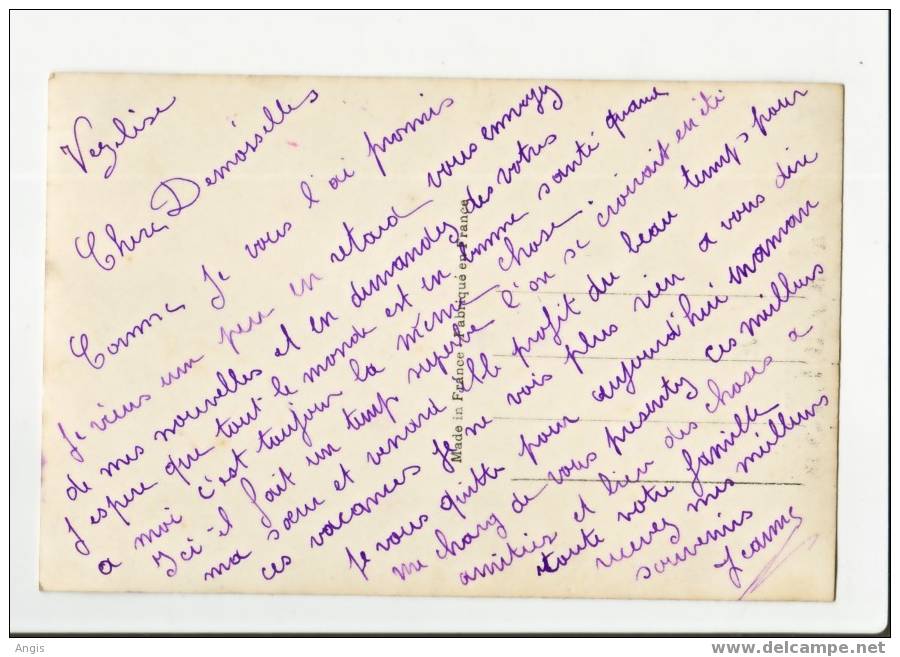 Vezelise
Chere Demoiselles
Comme Je vous l'ai promis
Je viens um peu en retard vous envoyez
de mes nouvelles et en demandez des votres
J espere que tout le monde est en bonne santé quand
a moi c'est toujour la meme chose.
Ici il fait un temp superbe l'on se croirait en été
ma sœur et renard elle profit du beau temps pour
ces vacances Je ne vois plus rien a vous dire
Je vous quitte pour aujourd'hui maman
me charg de vous presentez ces meilleurs
amities et bien des choses a
toute votre famille
recevez mes meilleurs
souvenirs
Jeanne
Made in France - Fabriqué en France
Angis
www.delcampe.net